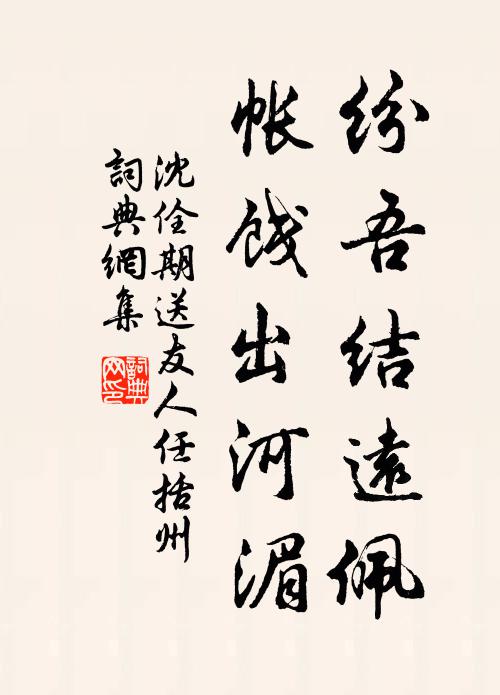 纷吾结遠佩
帐饯出河湄
沈佺期送友人任括州
詞典網集
詞典
网印